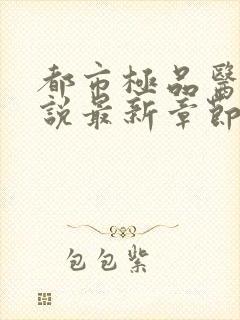 都市極品醫
說最新章節
包包紫